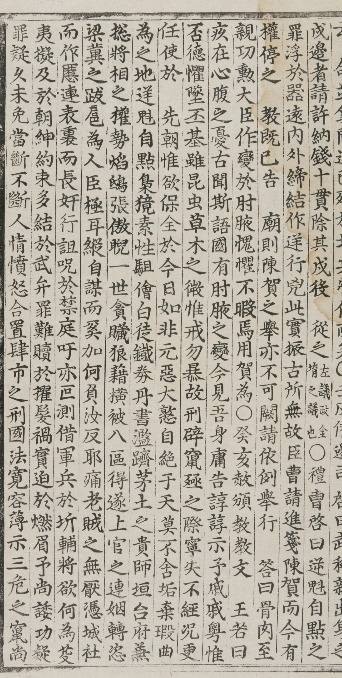 戍邊者請許納錢十貫除其戍後 從之左議政金堉之議也○禮曹啓曰逆魁自點之
罪浮於器遠內外締結作逆行兇此實振古所無故臣曹請進箋陳賀而今有
權停之 教旣已告 廟則陳賀之舉亦不可闕請依例舉行 答曰骨肉至
親功勳大臣作孽於肘腋愧懼不暇焉用賀爲○癸亥頒赦敎文 王若曰
亥在心腹之憂古聞斯語國有肘腋之變今見吾身庸告諄諄示予戚戚粤惟
否德懼墜丕基雖昆虫草木之微惟戒勿暴故刑辟竄殛之際寧失不經况更
任使於 先朝惟欲保全於今日如非元惡大憝自絶于天莫不舍垢棄瑕曲
爲之地逆魁自點梟獍素性駔儈白徒鐵券丹書濫躋茅土之貴師垣台府兼
摠將相之權勢焰鴟張傲睨一世貪贓狼藉橫被八區得遂上官之連姻轉恣
梁冀之跋扈爲人臣極耳縱自謀而奚加何負汝反耶痛老賊之無厭憑城社
而作慝連表裏而長奸行詛呪於禁庭吁亦叵測借軍兵於圻輔將欲何爲芟
夷擬及於朝紳約束多結於武弁罪難贖於擢髮禍實迫於燃眉予尚諉功疑
罪疑久未免當斷不斷人情憤怒合置肆市之刑國法寬容薄示三危之竄尚